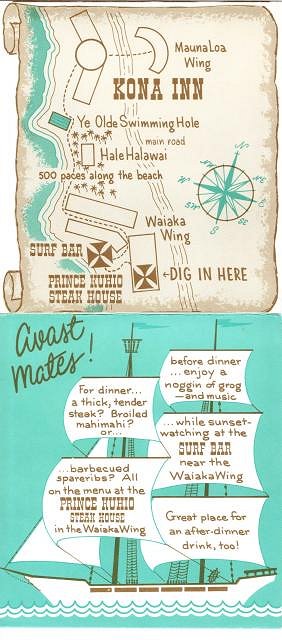 Mauna Loa
Wing
KONA INN
Ye Olde Swimming Hole
main road
Hale Halawai
500 paces along the beach
Waiaka
Wing
SURF BAR
←DIG IN HERE
PRINCE KUHIO
STEAK HOUSE
Avast
Mates!
For dinner...
a thick, tender
steak? Broiled
mahimahi?
or...
...barbecued
spareribs? All
on the menu at the
PRINCE KUHIO
STEAK HOUSE
in the Waiaka Wing
before dinner
...enjoy a
noggin of grog
—and music
...while sunset-
watching at the
SURF BAR
near the
Waiaka Wing
Great place for
an after-dinner
drink, too!